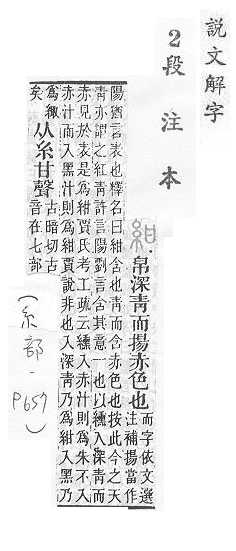 說文解字
2段注本
紺 帛深青而揚赤色也 而字依文選
注補揚當作
陽猶言表也釋名曰紺含也青而含赤色也按此今之天
青亦謂之紅青許言陽劉言含其意一也以纁入深青而
赤見於表是爲紺賈氏考工疏云纁入赤汁則爲朱不入
赤汁而入黑汁則爲紺賈說非也入深青乃爲紺入黑乃
爲緅
矣 从糸甘聲 古暗切古
音在七部
(糸部-P657)